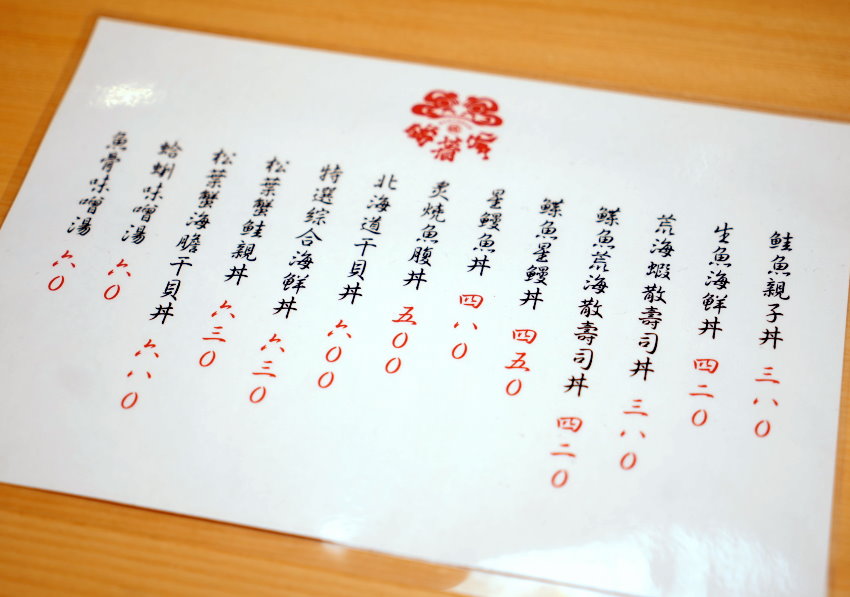 鮭魚親子丼 三八〇
生魚海鮮丼 四二〇
荒海蝦散壽司丼 三八〇
鰈魚荒海散壽司丼 四二〇
鰈魚星鰻丼 四五〇
星鰻魚丼 四八〇
炙燒魚腹丼 五〇〇
北海道干貝丼 六〇〇
特選綜合海鮮丼 六三〇
松葉蟹鮭親丼 六三〇
松葉蟹海膽干貝丼 六八〇
蛤蜊味噌湯 六〇
魚骨味噌湯 六〇